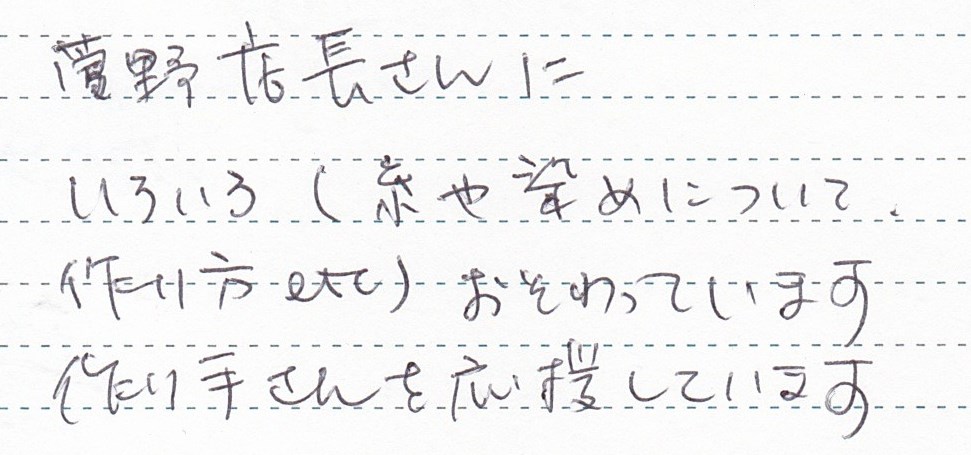 野店長さんに
いろいろ(糸や染めについて.
作り方etc)おそわっています
作り手さんを応援しています